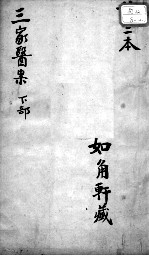 三本
三家醫案 下部
如角軒藏